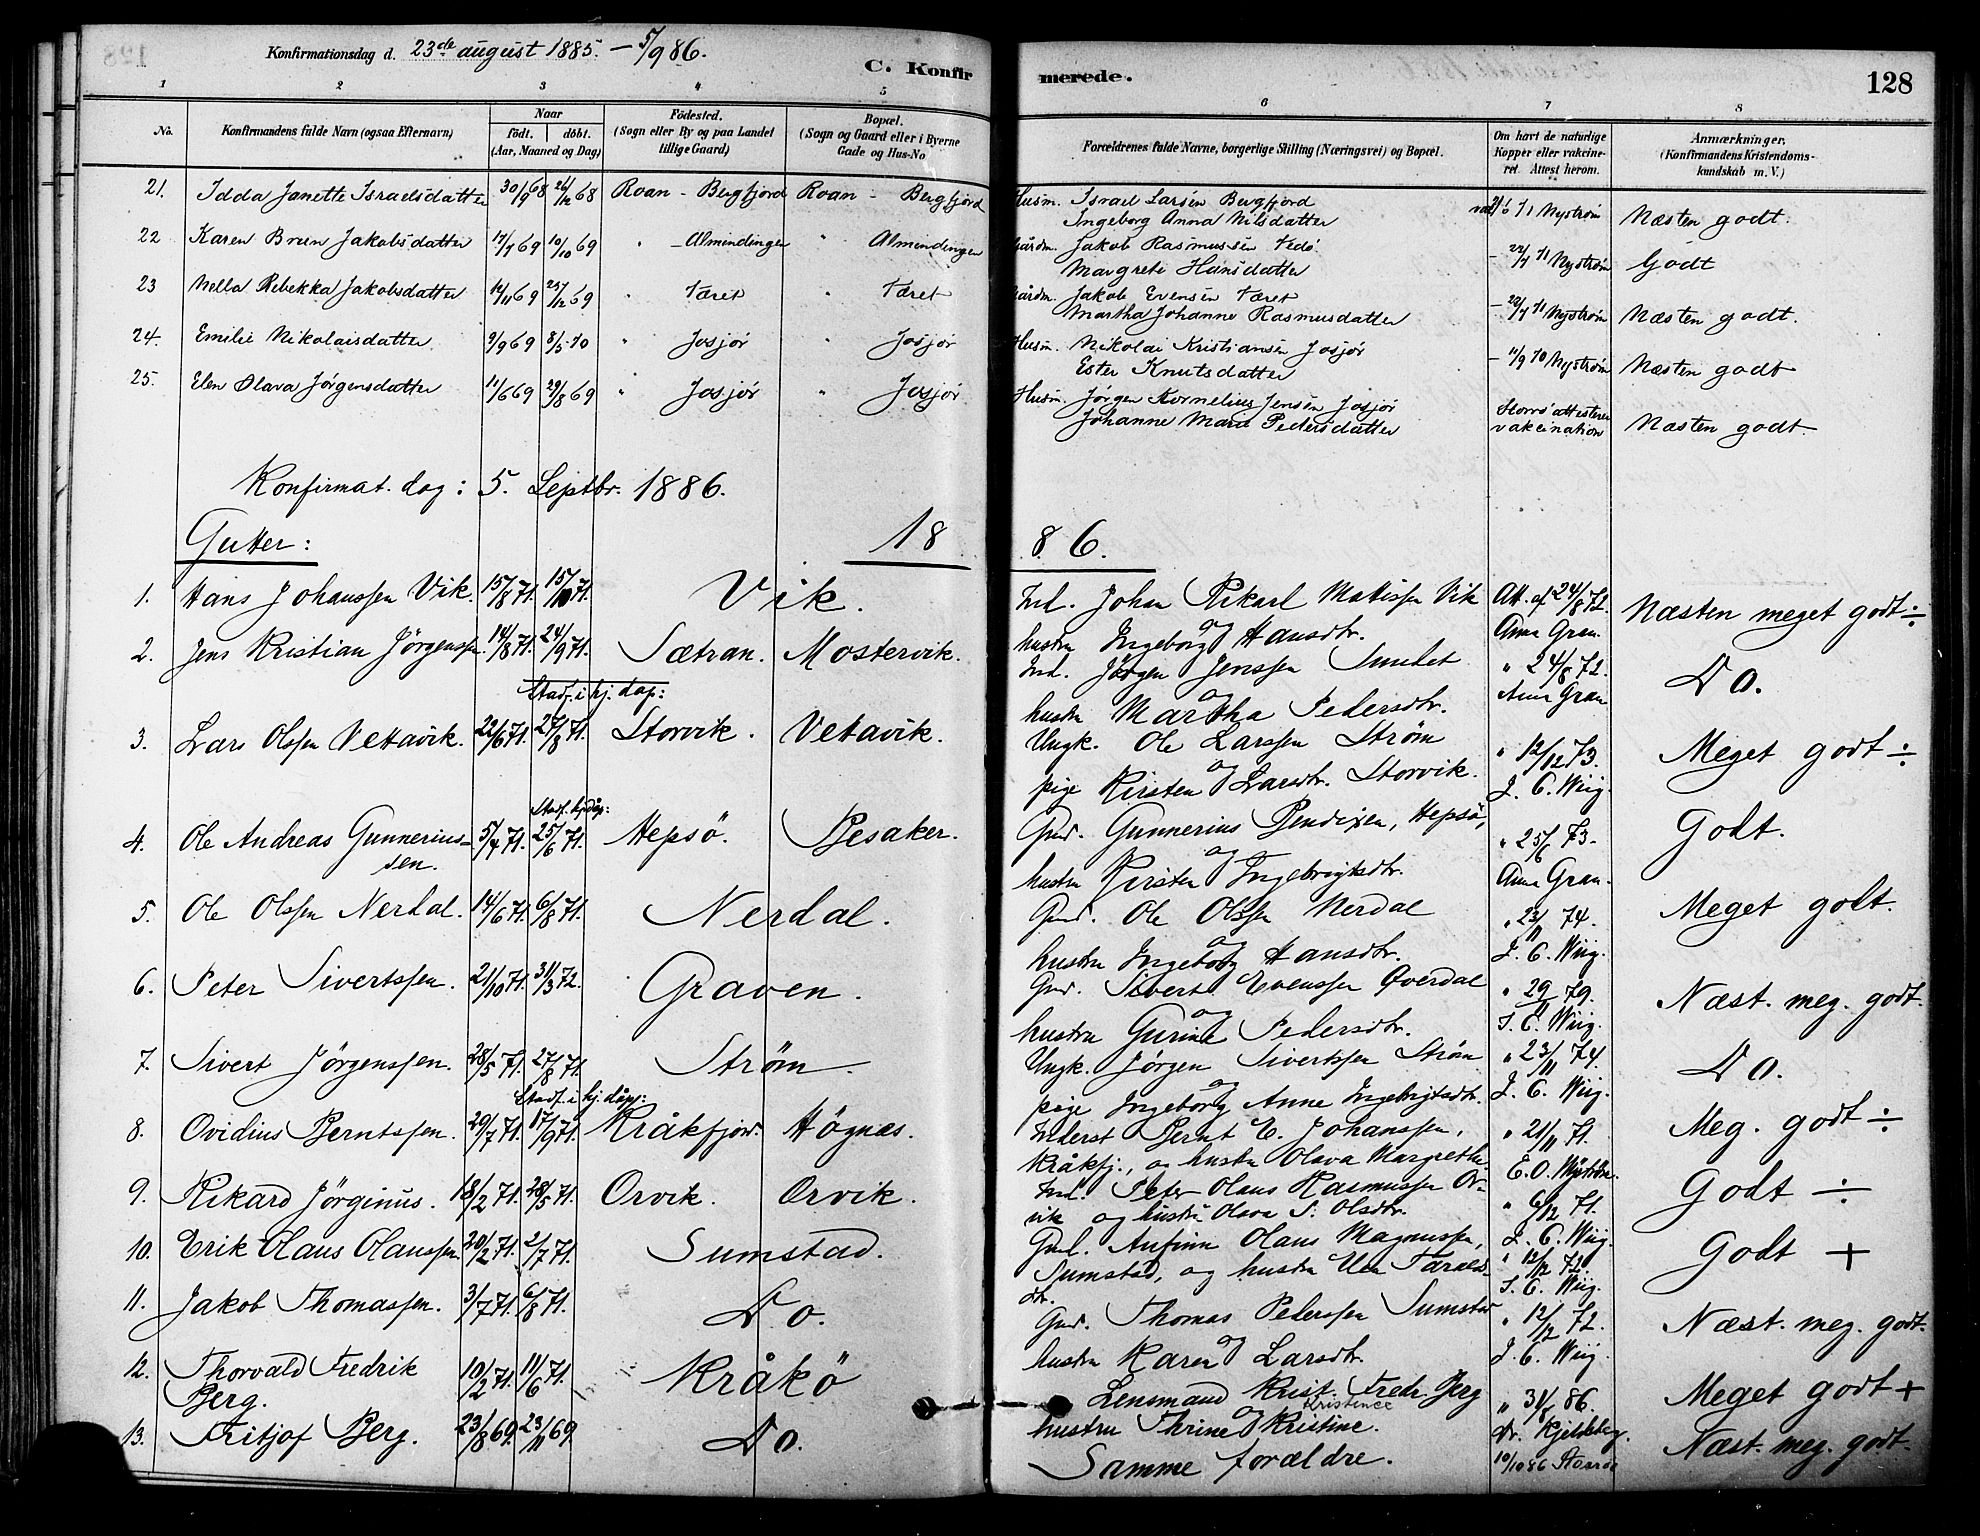 Konfirmationsdag d. 23de august 1885. – 5/9 86.
C. Konfirmerede.
128
1 2 3 4 5 6 7 8
No.
Konfirmandens fulde Navn (ogsaa Efternavn)
Naar
födt. döbt.
(Aar, Maaned og Dag)
Födested.
(Sogn eller By og paa Landet
tillige Gaard)
Bopæl.
(Sogn og Gaard eller i Byerne
Gade og Hus-No
Forældrenes fulde Navne, borgerlige Stilling (Næringsvei) og Bopæl.
Om havt de naturlige
Kopper eller vakcine-
ret. Attest herom.
Anmærkninger.
(Konfirmandens Kristendoms-
kundskab m. V.)
21. Idda Janette Israelsdatter 30/9 68 26/12 68 Roan - Bergfjord Roan - Bergfjord Husm. Israel Larsen Bergfjord
Ingeborg Anna Nilsdatter 71 Nyström Næsten godt.
22 Karen Brun Jakobsdatter 17/7 69 10/10 69 " - Almindingen " Almindingen Gårdm. Jakob Rasmussen
Margrete Hansdatter – 22/7 71 Nyström Godt
23 Nella Rebekka Jakobsdatter 14/11 69 25/12 69 " Færet " Færet Gårdm. Jakob Evensen Færet
Martha Johanne Rasmusdatter – 22/7 71 Nyström Næsten godt.
24. Emilie Nikolaisdatter 9/9 69 8/5 70 " Josjör " Josjör Husm. Nikolai Kristiansen Josjör
Ester Knutsdatter – 11/9 70 Nyström Næsten godt
25. Elen Olava Jörgensdatter 11/6 69 29/8 69 " Josjör " Josjör Husm. Jörgen Kornelius Jensen Josjör
Johanne Marie Pedersdatter Storrö attesterer
vakcination Næsten godt.
Konfirmat. dag: 5. Septbr. 1886.
Gutter: 18 86.
1. Hans Johanssen Vik. 15/8 71. 15/10 71. Vik. Ind. Johan Rikart Mathissen Vik
og
hustru Ingeborg Hansdtr. Att. af 24/8 72.
Anna Gran. Næsten meget godt ÷
2. Jens Kristian Jörgenssen. 14/8 71. 24/9 71. Sætran. Mostervik. Ind. Jörgen Jenssen Sundet
og
hustru Martha Pedersdtr. " 24/8 72.
Anna Gran Do.
Stadf. i hj. dåp:
3. Lars Olssen Vetavik. 22/6 71. 27/8 71. Storvik. Vetavik. Ungk. Ole Larssen Ström
og
pige Kirsten Larsdtr. Storvik. " 12/12 73.
J. C. Wiig. Meget godt ÷
Stadf. hjdåp:
4. Ole Andreas Gunnerius-
sen. 5/4 71. 25/6 71. Hepsö. Besaker. Gmd. Gunnerius Bendixen, Hepsö,
og
hustru Kirsten Ingebrigtsdtr. " 25/6 73.
Anna Gran. Godt.
5. Ole Olssen Nerdal. 14/6 71. 6/8 71. Nerdal. Gmd. Ole Olssen Nerdal
og
hustru Ingeborg Hansdtr. " 23/11 74.
J. C. Wiig. Meget godt.
6. Peter Sivertssen. 21/10 71. 31/3 72. Graven. Gmd. Sivert Evenssen Överdal
og
hustru Gurine Pedersdtr. " 29/11 79.
J. C. Wiig. Næst. meg. godt.
7. Sivert Jörgenssen. 28/5 71. 27/8 71. Ström. Ungk. Jörgen Sivertssen Ström
og
pige Ingeborg Anne Ingebrigtsdtr. " 23/11 74.
J. C. Wiig. Do.
Stadf. i hj. dåp:
8. Ovidius Berntssen. 29/7 71. 17/9 71. Kråkfjor. Högnæs. Inderst Bernt E. Johanssen,
Kråkfj., og hustru Olava Margrethe. " 21/11 71.
E. O. Nyström. Meg. godt ÷
9. Rikard Jörginus. 18/2 71. 28/5 71. Orvik. Orvik. Ind. Peter Olaus Rasmussen Or-
vik og hustru Olava P. Olsdtr. " 9/12 71.
J. C. Wiig. Godt ÷
10. Erik Olaus Olaussen 20/2 71. 2/7 71. Sumstad. Gmd. Anfinn Olaus Magnussen,
Sumstad, og hustru Taralds-
dtr. " 12/12 72.
J. C. Wiig. Godt +
11. Jakob Thomassen. 3/7 71. 6/8 71. Do. Gmd. Thomas Pederssen Sumstad
og
hustru Karen Larsdtr. " 12/12 72.
J. C. Wiig. Næst. meg. godt.
12. Thorvald Fredrik
Berg. 10/2 71. 11/6 71. Kråkö Lensmand Krist. Fredr. Berg
og Kristence
hustru Thrine Kristine. " 31/8 86.
Dr. Kjeldsberg. Meget godt +
13. Fritjof Berg. 23/8 69. 23/11 69. Do. Samme forældre. 10/10 86 Storrö Næst. meg. godt.